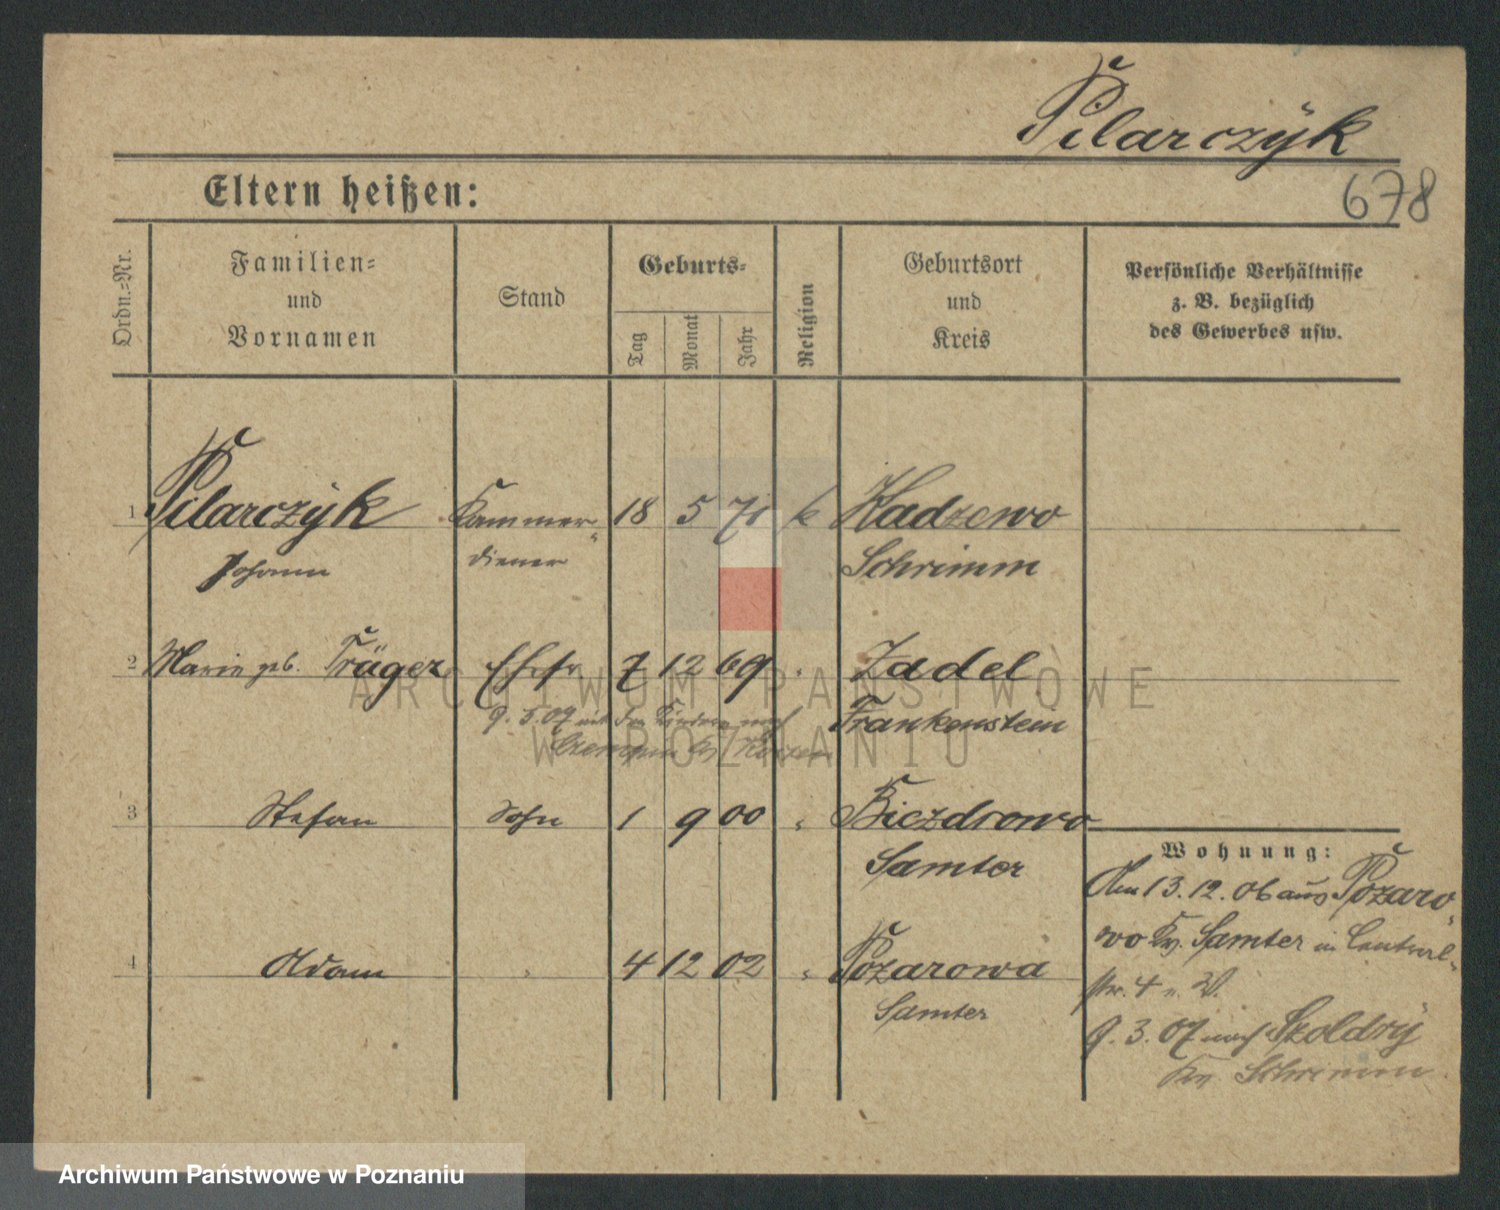 Pilarczÿk
678
Eltern heißen:
Ordn.-Nr.
Familien-
und
Vornamen
Stand
Geburts-
Tag
Monat
Jahr
Religion
Geburtsort
und
Kreis
Persönliche Verhältnisse
z. B. bezüglich
des Gewerbes usw.
1 Pilarczÿk Kammer- 18 5 71 k Kadzewo
Johann diener Schrimm
2 Marie geb. Träger Ehefr 7 12 69 " Zadel
9.3.07 mit den Kindern nach Frankenstein
3 Stefan Sohn 1 9 00 " Biezdrowo
Samter
Wohnung:
Am 13.12.06 aus Pożaro-
wo Kr. Samter in Central-
4 Adam " 4 12 02 " Pożarowa
str. 4 v. W.
Samter
9.3.07 nach Szoldrÿ
Kr. Schrimm.
ARCHIWUM PAŃSTWOWE
W POZNANIU
Archiwum Państwowe w Poznaniu